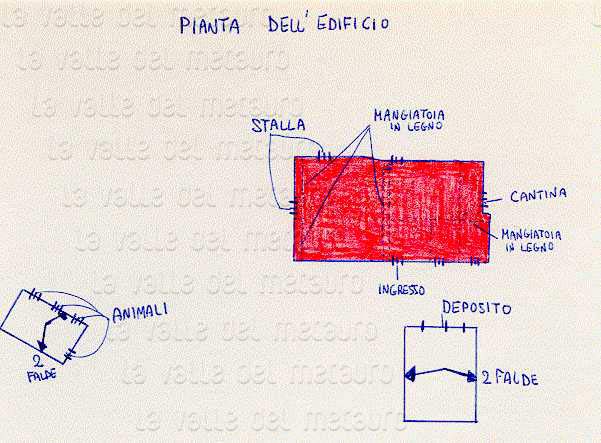 PIANTA DELL'EDIFICIO
la valle del metauro
la valle del metauro
la valle del metauro
STALLA
MANGIATOIA
IN LEGNO
la valle del metauro
la valle del metauro
CANTINA
la valle del metauro
MANGIATOIA
IN LEGNO
la valle del metauro
INGRESSO
ANIMALI
DEPOSITO
la valle del metauro
2
FALDE
2 FALDE
la valle del metauro
la valle del metauro